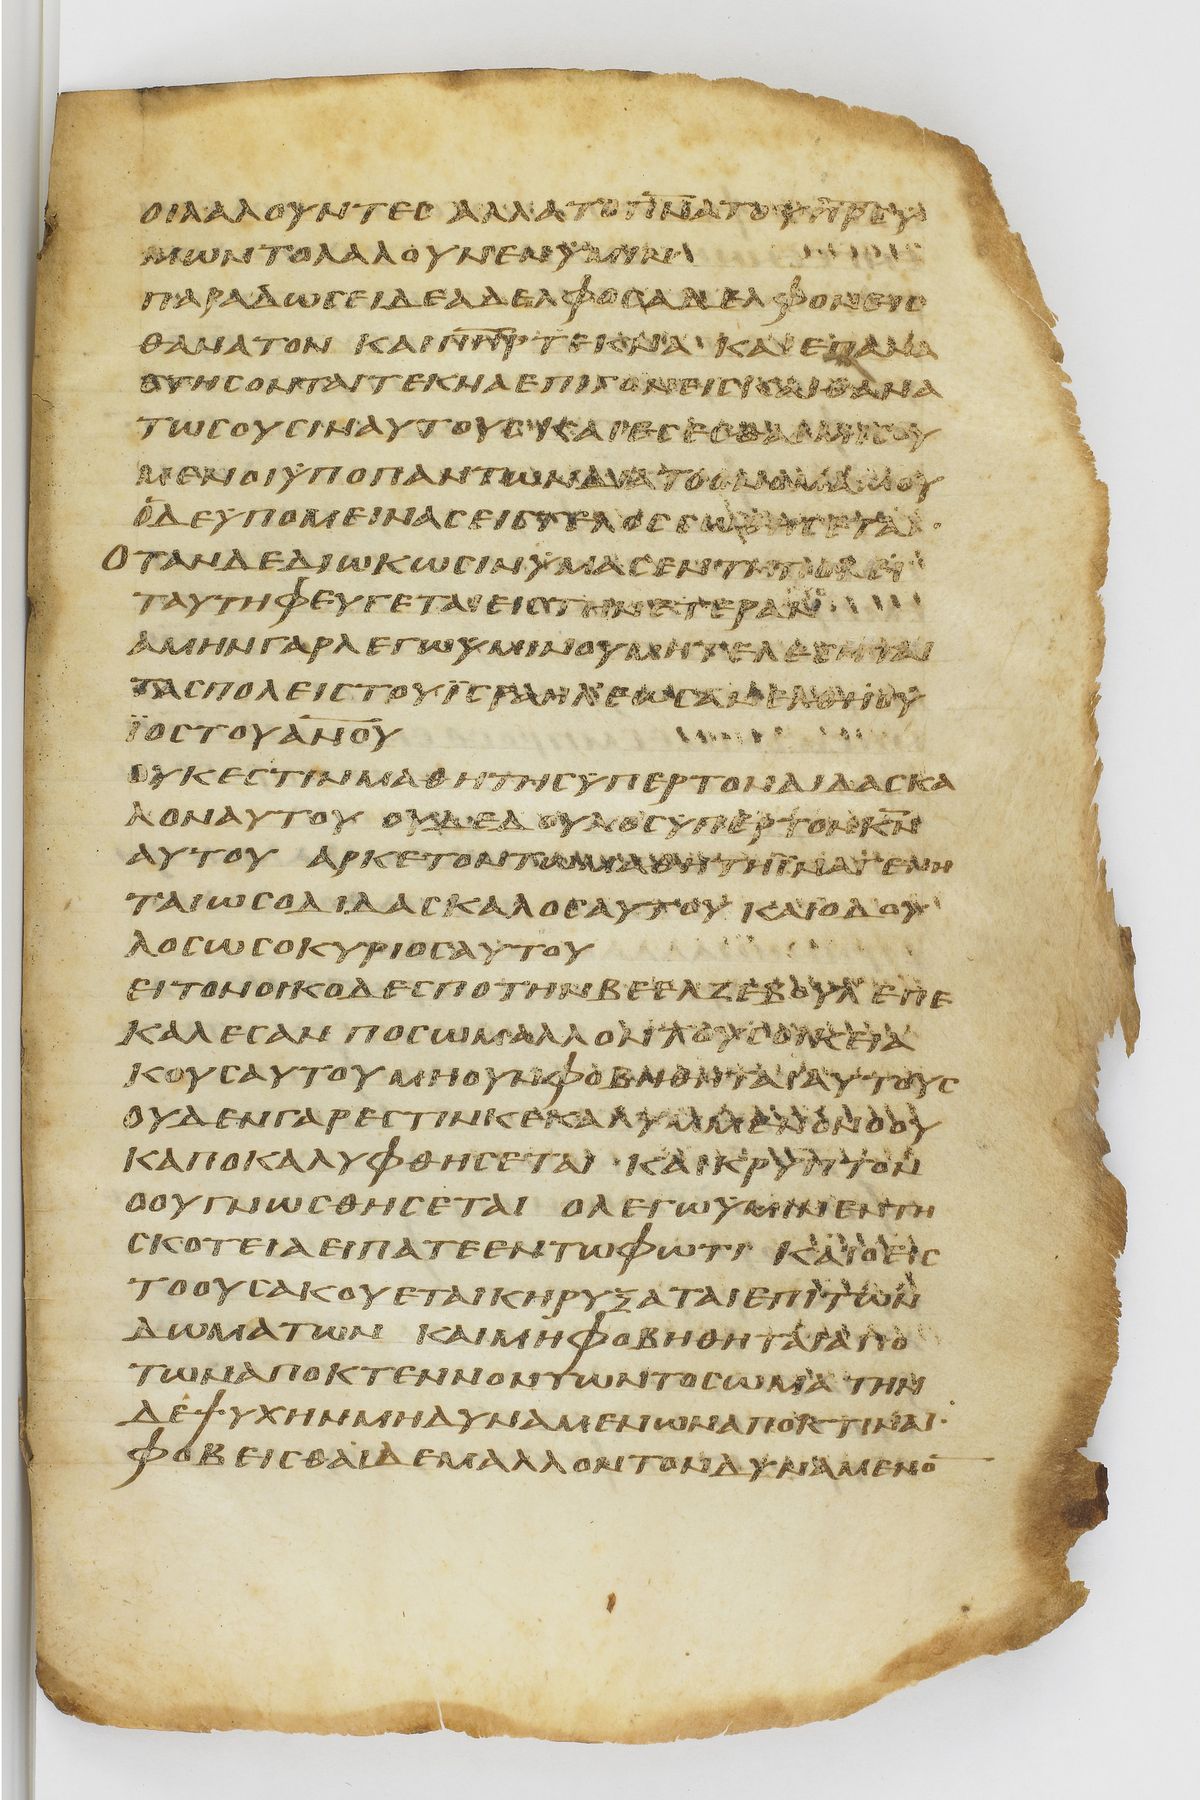 ΟΙΛΑΛΟΥΝΤΕC ΑΛΛΑΤΟΠΝΑΤΟΥΠΡCΥ
ΜωΝΤΟΛΑΛΟΥΝΕΝΥΜΙΝ
ΠΑΡΑΔωCΕΙΔΕΑΔΕΛΦΟCΑΔΕΛΦΟΝΕΙC
ΘΑΝΑΤΟΝ ΚΑΙΠΗΡΤΕΚΝΑ ΚΑΙΕΠΑΝΑ
CΤΗCΟΝΤΑΙΤΕΚΝΑΕΠΙΓΟΝΕΙCΚΑΙΘΑΝΑ
ΤωCΟΥCΙΝΑΥΤΟΥC ΚΑΙΕCΕCΘΑΙΜΙCΟΥ
ΜΕΝΟΙΥΠΟΠΑΝΤωΝΔΙΑΤΟΟΝΟΜΑΜΟΥ
ΟΔΕΥΠΟΜΕΙΝΑCΕΙCΤΕΛΟCCωΘΗCΕΤΑΙ
ΟΤΑΝΔΕΔΙωΚωCΙΝΥΜΑCΕΝΤΗΠΟΛΕΙ
ΤΑΥΤΗΦΕΥΓΕΤΑΙΕΙCΤΗΝΕΤΕΡΑΝ
ΑΜΗΝΓΑΡΛΕΓωΥΜΙΝΟΥΜΗΤΕΛΕCΗΤΑΙ
ΤΑCΠΟΛΕΙCΤΟΥΪCΡΑΗΛΕωCΑΝΕΛΘΗΟΥ
ΪΟCΤΟΥΑΝΟΥ
ΟΥΚΕCΤΙΝΜΑΘΗΤΗCΥΠΕΡΤΟΝΔΙΔΑCΚΑ
ΛΟΝΑΥΤΟΥ ΟΥΔΕΔΟΥΛΟCΥΠΕΡΤΟΝΚΝ
ΑΥΤΟΥ ΑΡΚΕΤΟΝΤωΜΑΘΗΤΗΪΝΑΓΕΝΗ
ΤΑΙωCΟΔΙΔΑCΚΑΛΟCΑΥΤΟΥ ΚΑΙΟΔΟΥ
ΛΟCωCΟΚΥΡΙΟCΑΥΤΟΥ
ΕΙΤΟΝΟΙΚΟΔΕCΠΟΤΗΝΒΕΕΛΖΕΒΟΥΛ ΕΠΕ
ΚΑΛΕCΑΝ ΠΟCωΜΑΛΛΟΝΤΟΥCΟΙΚΕΙΑ
ΚΟΥCΑΥΤΟΥ ΜΗΟΥΝΦΟΒΗΘΗΤΑΙΑΥΤΟΥC
ΟΥΔΕΝΓΑΡΕCΤΙΝΚΕΚΑΛΥΜΜΕΝΟΝΟΟΥ
ΚΑΠΟΚΑΛΥΦΘΗCΕΤΑΙ ΚΑΙΚΡΥΠΤΟΝ
ΟΟΥΓΝωCΘΗCΕΤΑΙ ΟΛΕΓωΥΜΙΝΕΝΤΗ
CΚΟΤΕΙΑΕΙΠΑΤΕΕΝΤωΦωΤΙ ΚΑΙΟΕΙC
ΤΟΟΥCΑΚΟΥΕΤΑΙΚΗΡΥΞΑΤΑΙΕΠΙΤωΝ
ΔωΜΑΤωΝ ΚΑΙΜΗΦΟΒΗΘΗΤΑΙΑΠΟ
ΤωΝΑΠΟΚΤΕΝΝΟΝΥωΝΤΟCωΜΑ ΤΗΝ
ΔΕΨΥΧΗΝΜΗΔΥΝΑΜΕΝωΝΑΠΟΚΤΙΝΑΙ
ΦΟΒΕΙCΘΑΙΔΕΜΑΛΛΟΝΤΟΝΔΥΝΑΜΕΝΟ̄